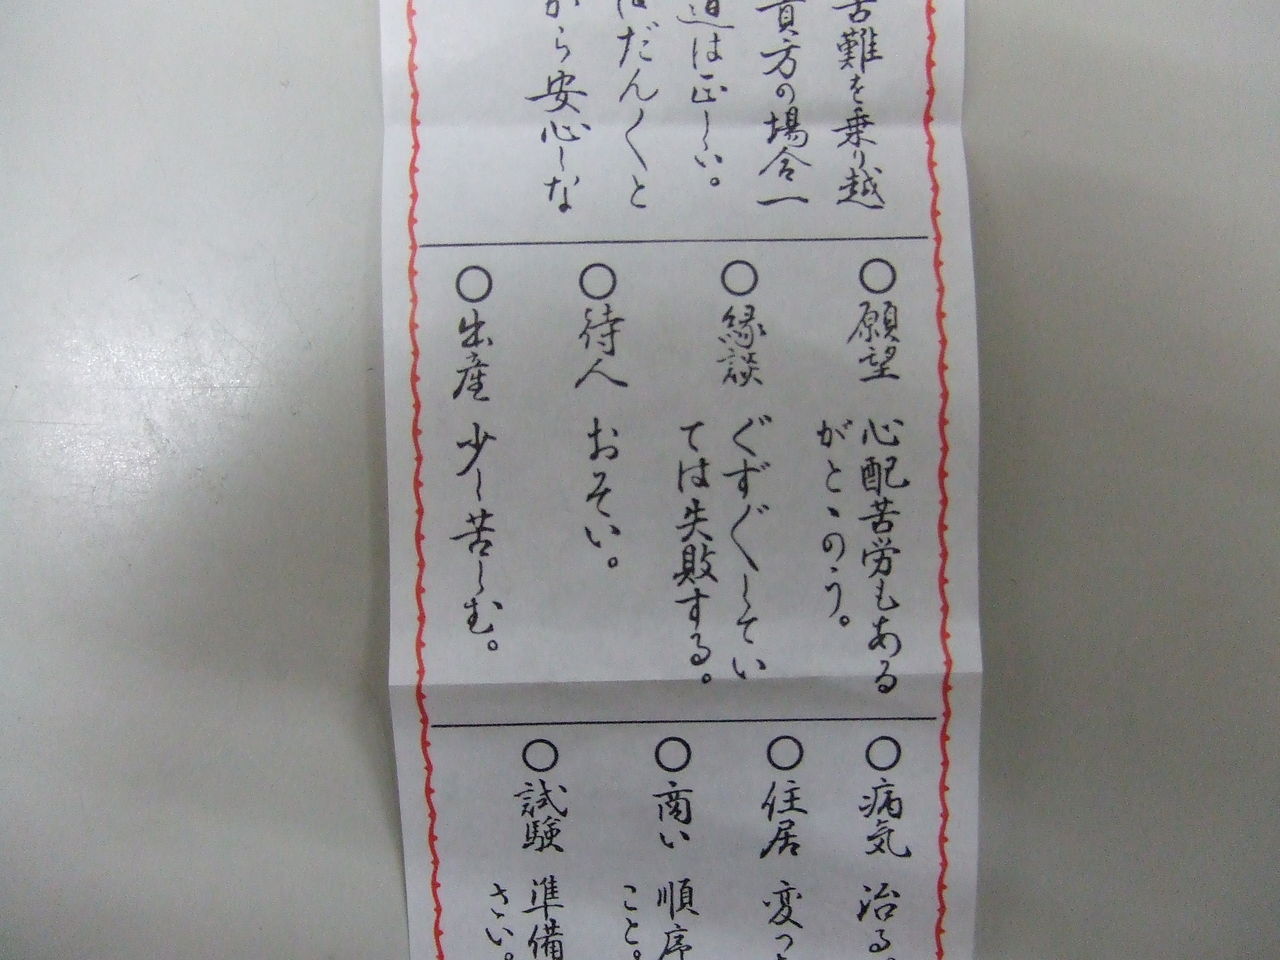 苦難を乗り越
貴方の場合一
道は正しい。
ばだんくと
から安心しな
○願望 心配苦労もある
がとゝのう。
○縁談 ぐずぐずしてい
ては失敗する。
○待人 おそい。
○出産 少し苦しむ。
○病気 治る。
○住居 変っ
○商い 順序
こと。
○試験 準備
さい。